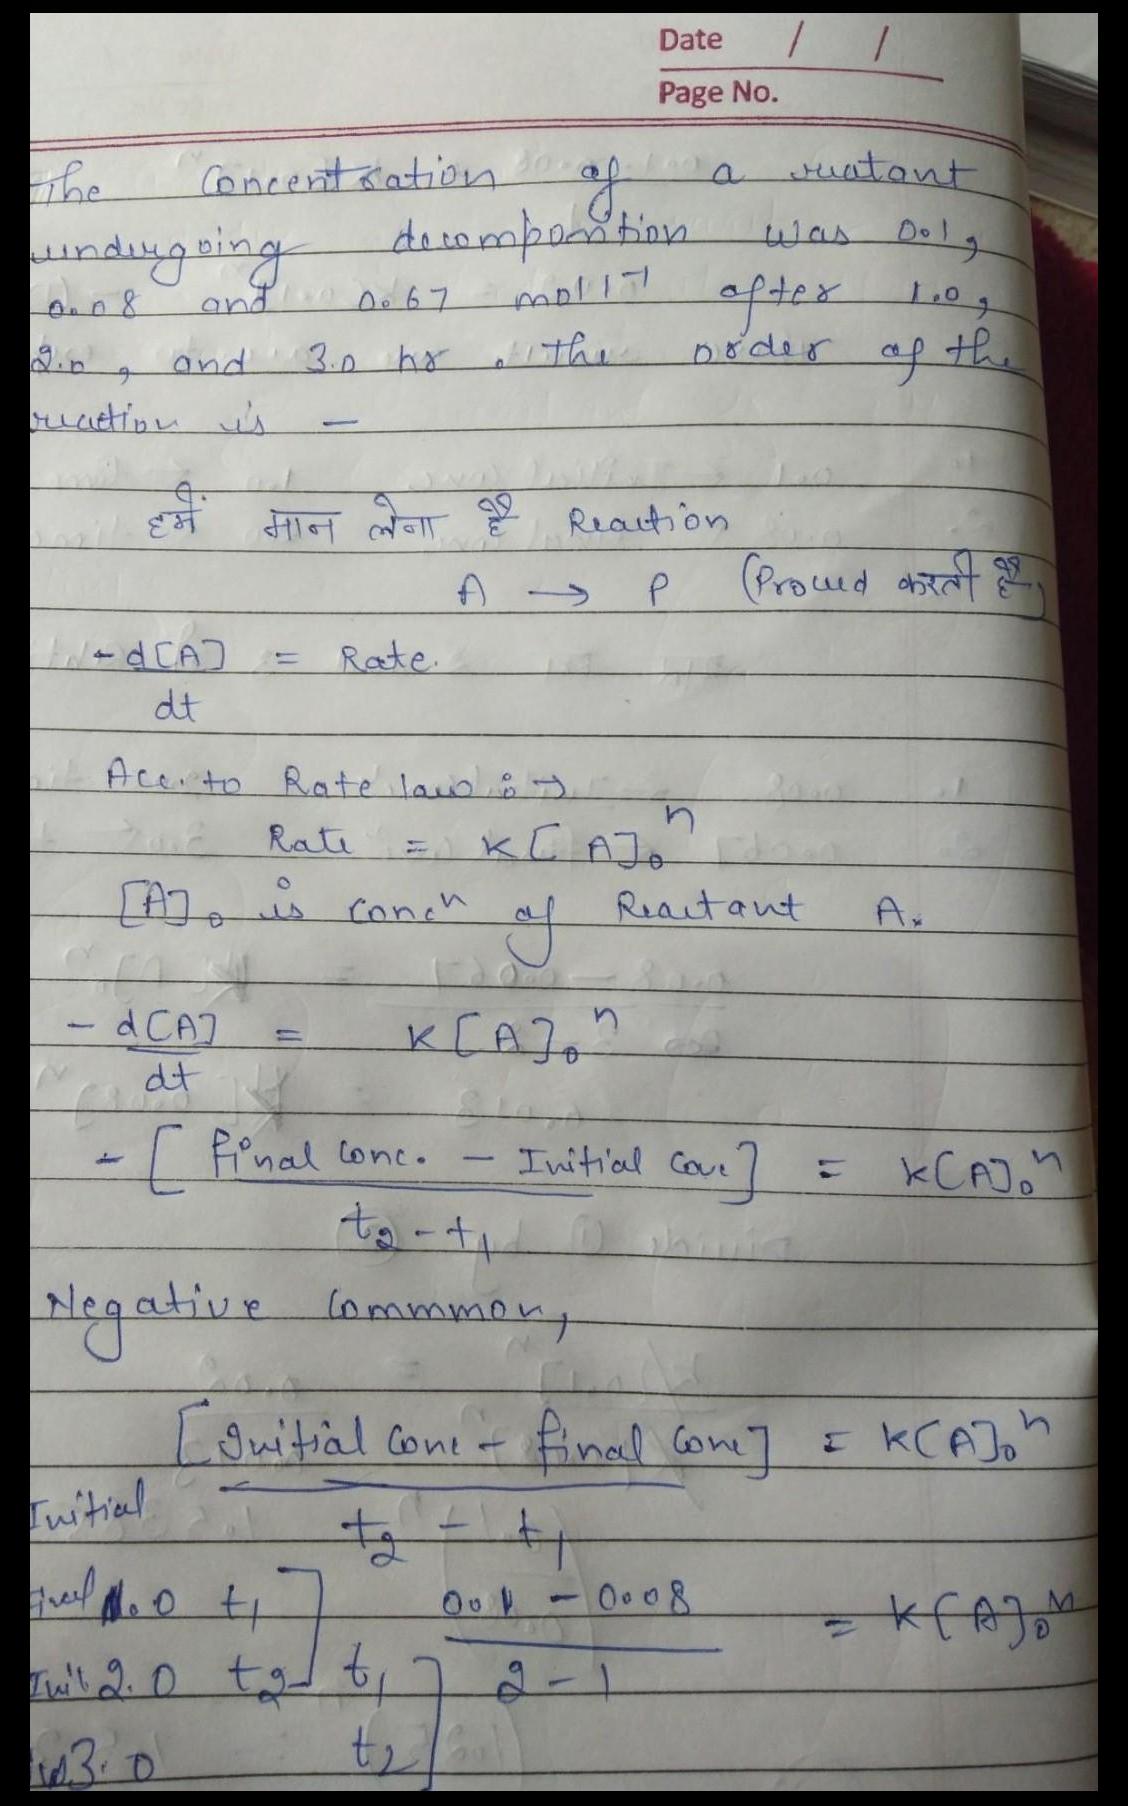 Date / /
Page No.
The Concentration of a reatant
undergoing decomposition was 0.1,
0.08 and 0.67 mol l⁻¹ after 1.0,
2.0, and 3.0 hr. The order of the
reaction is —
हमें मान लेना है Reaction
A → P (Proceed करती है)
- d[A] = Rate.
dt
Acc. to Rate law :→
Rate = K[A]₀ⁿ
[A]₀ is concⁿ of Reactant A.
- d[A] = K[A]₀ⁿ
dt
- [final conc. - Initial conc] = K[A]₀ⁿ
t₂ - t₁
Negative Commmon,
[Initial Conc - final Conc] = K[A]₀ⁿ
Initial
t₂ - t₁
final 1.0 t₁ ] 0.1 - 0.08 = K[A]₀ⁿ
Init 2.0 t₂ ] t₁ ] 2 - 1
3.0 t₂